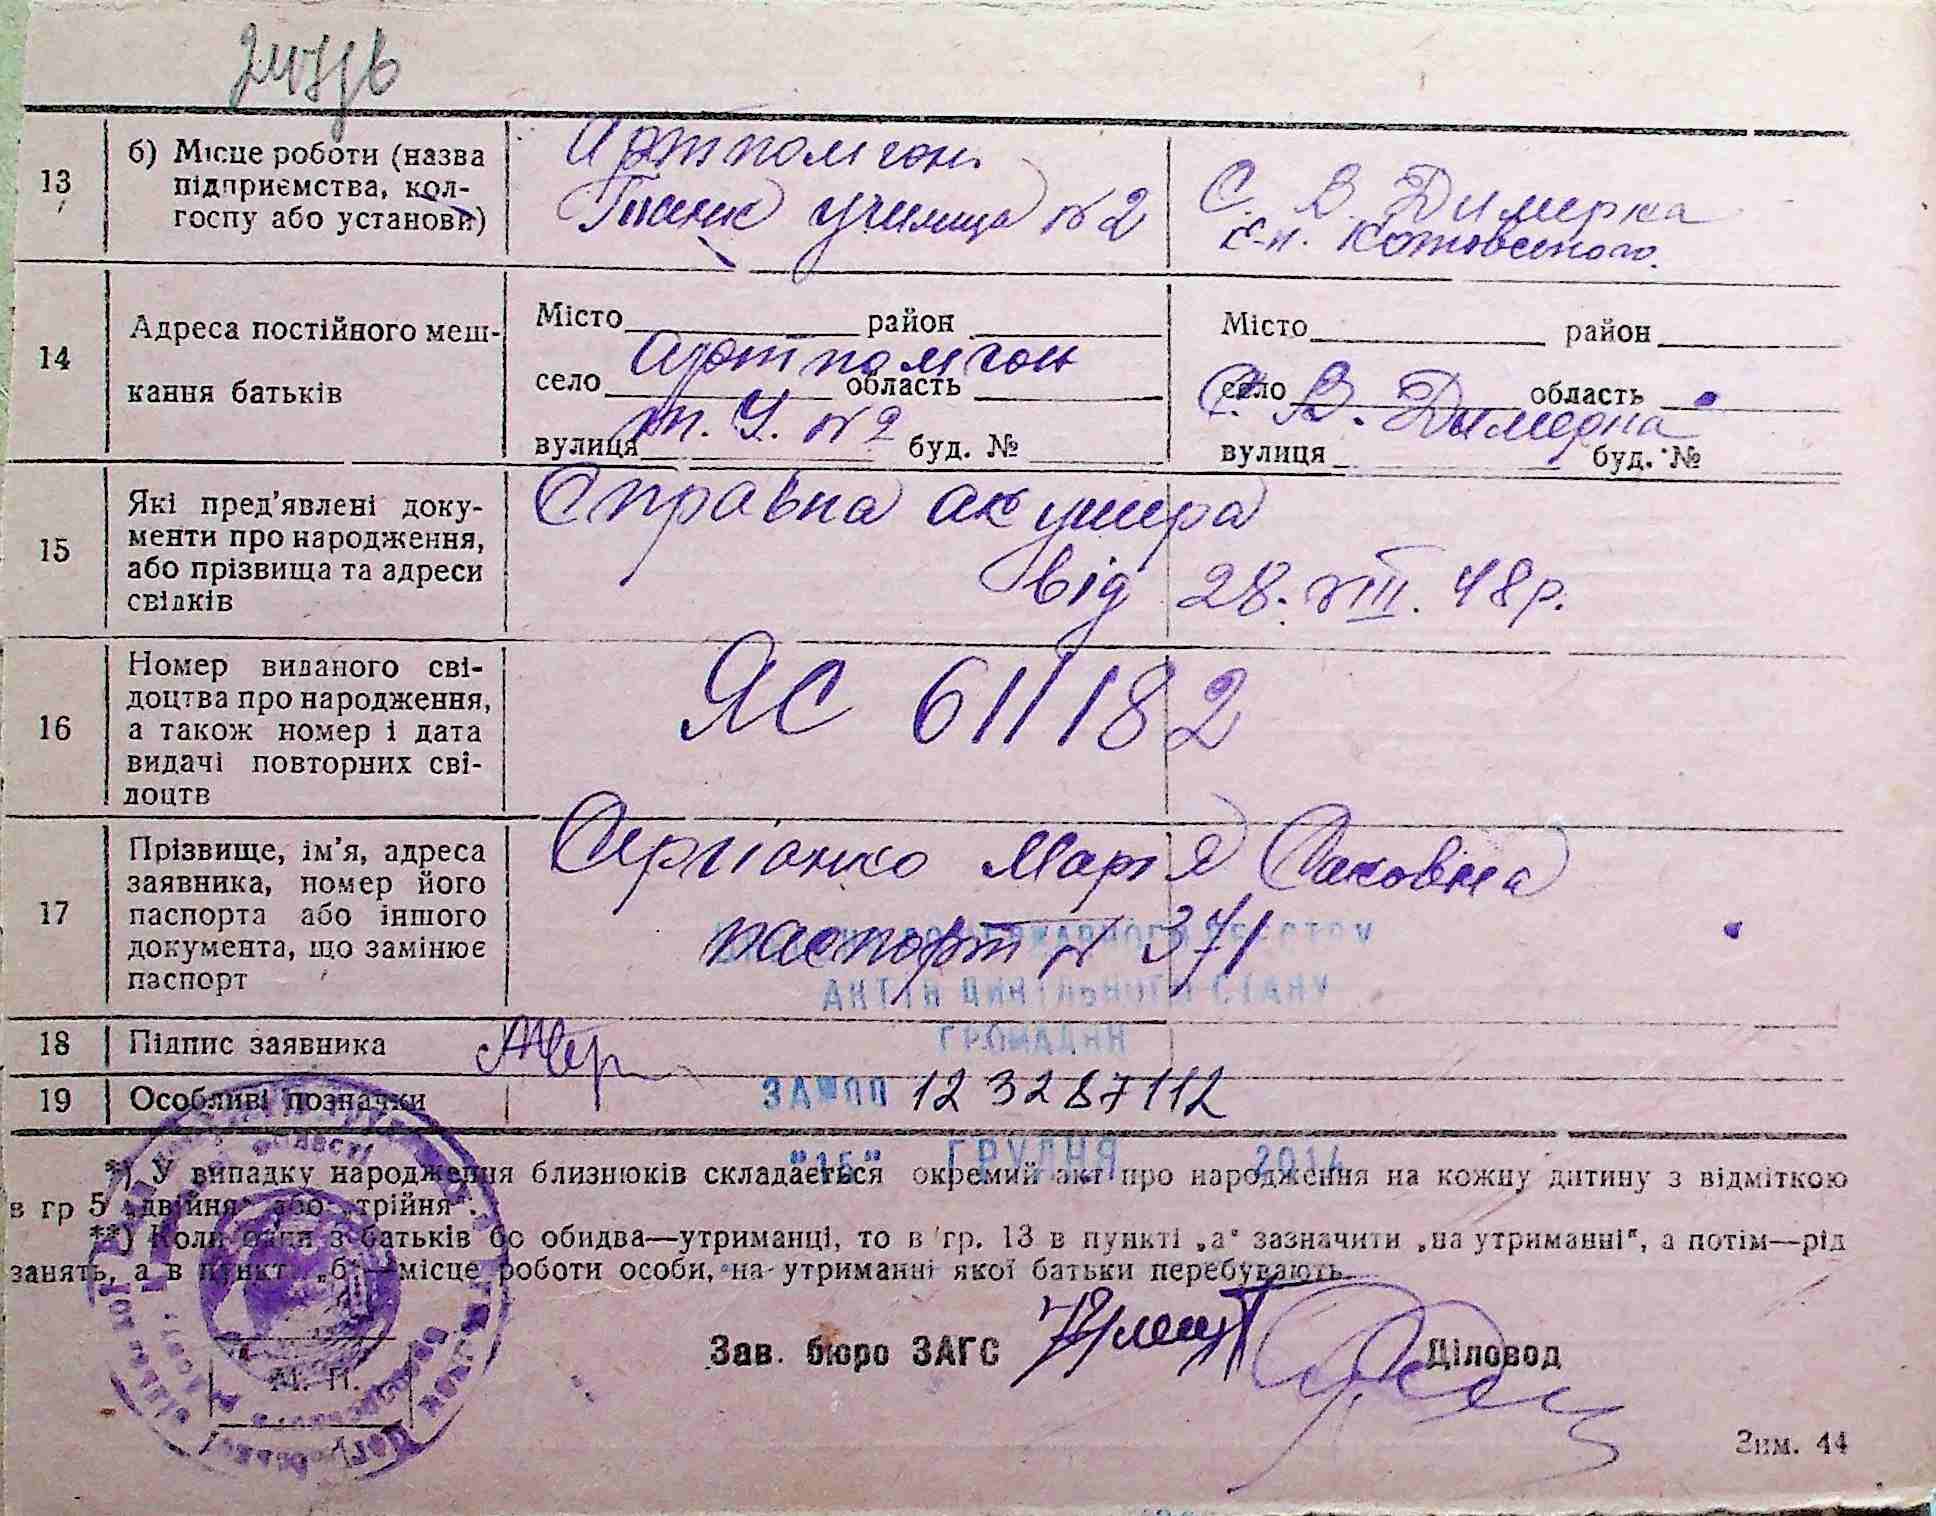 13
б) Місце роботи (назва
підприємства, кол-
госпу або установи)
Артполігон
Танк училища №2
С. В. Димерка
к-п. Котовського.
14
Адреса постійного меш-
кання батьків
Місто район
село Артполігон область
вулиця т. У. №2 буд. №
Місто район
село С. В. Димерка область
вулиця буд. №
15
Які пред'явлені доку-
менти про народження,
або прізвища та адреси
свідків
Справка акушера
від 28. VIII. 48р.
16
Номер виданого сві-
доцтва про народження,
а також номер і дата
видачі повторних сві-
доцтв
ЯС 611182
17
Прізвище, ім'я, адреса
заявника, номер його
паспорта або іншого
документа, що замінює
паспорт
Сергієнко Марія Саковна
паспорт № 371
ДЕРЖАВНОГО РЕЄСТРУ
АКТІВ ЦИВІЛЬНОГО СТАНУ
ГРОМАДЯН
18
Підпис заявника
19
Особливі позначки
ЗА №00 123287112
"15" ГРУДНЯ 2014
*) У випадку народження близнюків складається окремий акт про народження на кожну дитину з відміткою
в гр 5 „двійня" або „трійня".
**) Коли один з батьків бо обидва—утриманці, то в гр. 13 в пункті „а" зазначити „на утриманні", а потім—рід
занять, а в пункт „б"—місце роботи особи, на утриманні якої батьки перебувають.
Зав. бюро ЗАГС
Діловод
М. П.
Зим. 44